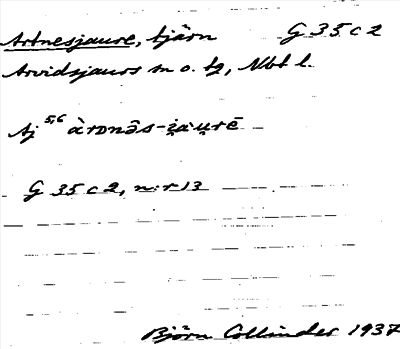 Artnesjaure, tjärn G 35 c 2
Arvidsjaurs sn o. tg, Nbt l.
Aj 5,6 àrdnə̑s-jau̯rē
G 35 c 2, n:r 13
Björn Collinder 1937